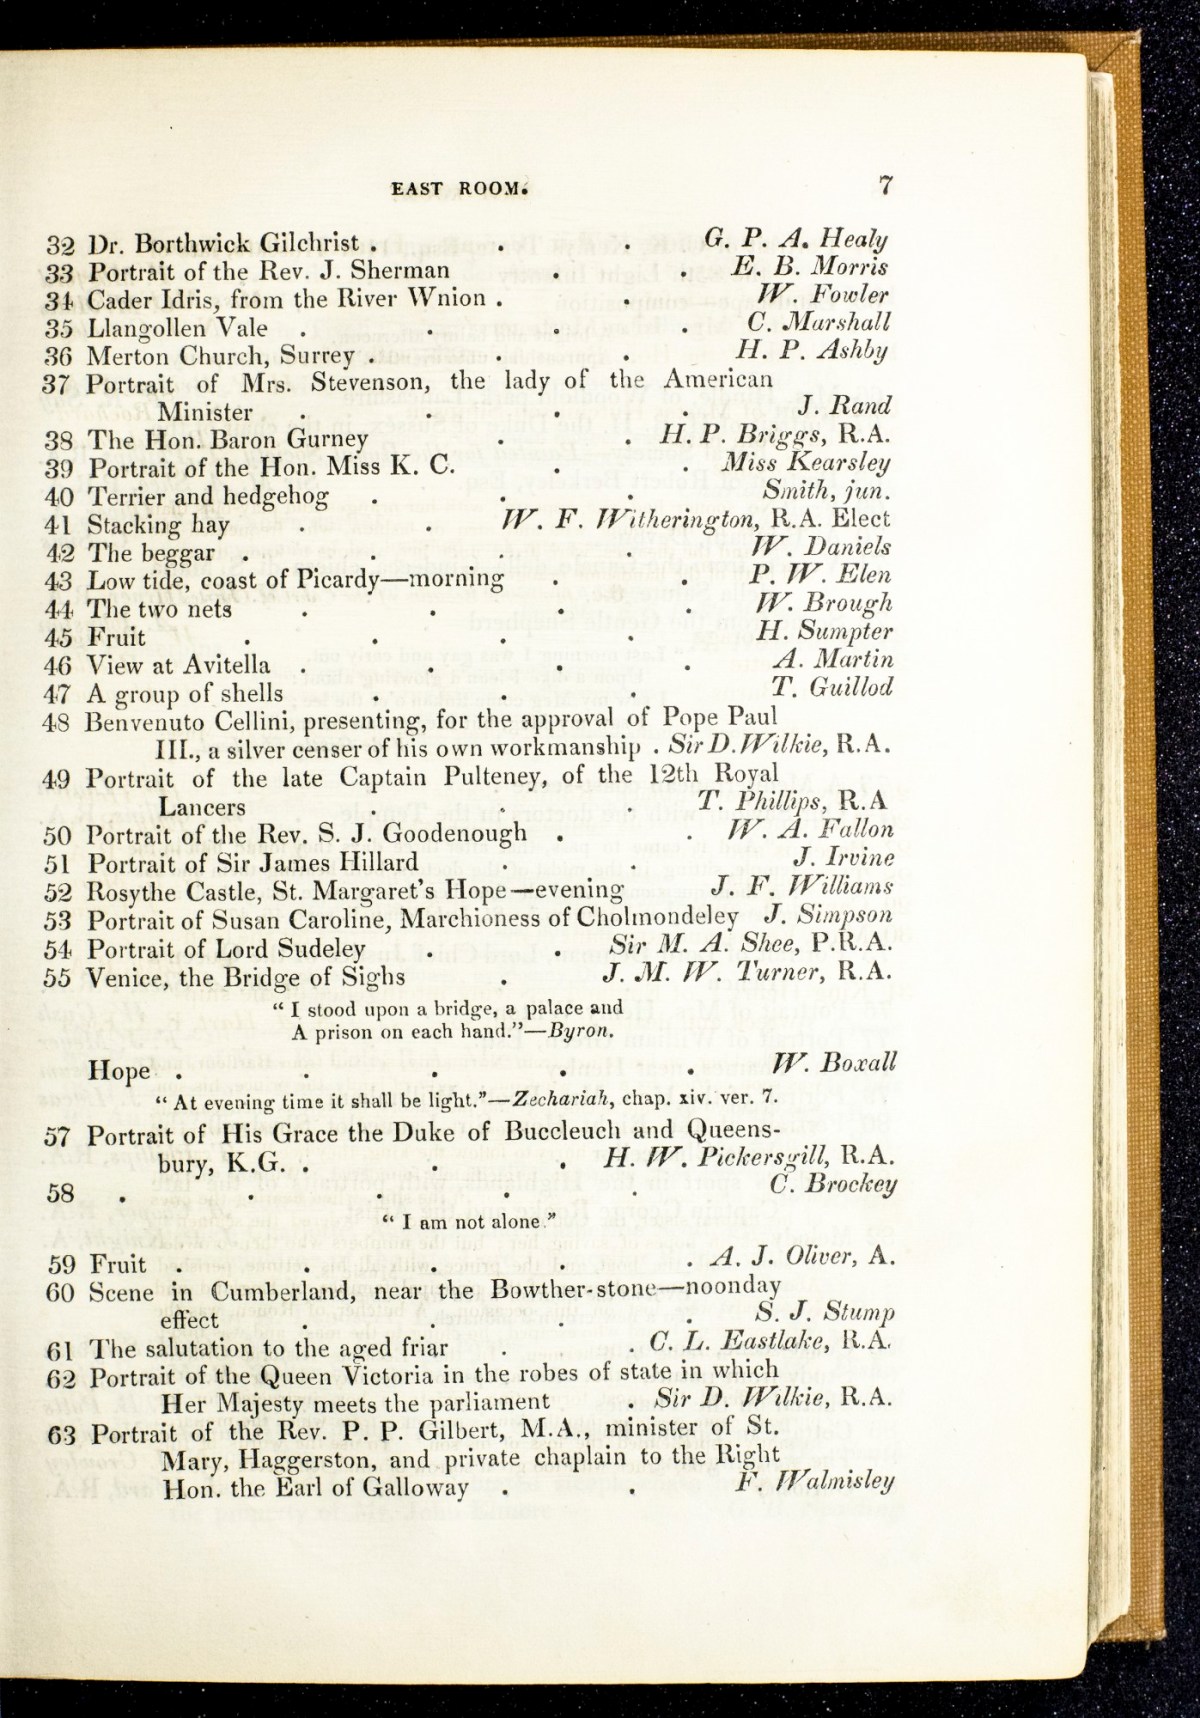 EAST ROOM. 7
32 Dr. Borthwick Gilchrist . . . G. P. A. Healy
33 Portrait of the Rev. J. Sherman . . E. B. Morris
34 Cader Idris, from the River Wnion . . W. Fowler
35 Llangollen Vale . . . . C. Marshall
36 Merton Church, Surrey . . . H. P. Ashby
37 Portrait of Mrs. Stevenson, the lady of the American
Minister . . . . J. Rand
38 The Hon. Baron Gurney . . H. P. Briggs, R.A.
39 Portrait of the Hon. Miss K. C. . . Miss Kearsley
40 Terrier and hedgehog . . . Smith, jun.
41 Stacking hay . . W. F. Witherington, R.A. Elect
42 The beggar . . . . W. Daniels
43 Low tide, coast of Picardy—morning . . P. W. Elen
44 The two nets . . . . W. Brough
45 Fruit . . . . H. Sumpter
46 View at Avitella . . . . A. Martin
47 A group of shells . . . T. Guillod
48 Benvenuto Cellini, presenting, for the approval of Pope Paul
III., a silver censer of his own workmanship . Sir D. Wilkie, R.A.
49 Portrait of the late Captain Pulteney, of the 12th Royal
Lancers . . . T. Phillips, R.A
50 Portrait of the Rev. S. J. Goodenough . . W. A. Fallon
51 Portrait of Sir James Hillard . . J. Irvine
52 Rosythe Castle, St. Margaret's Hope—evening J. F. Williams
53 Portrait of Susan Caroline, Marchioness of Cholmondeley J. Simpson
54 Portrait of Lord Sudeley . . Sir M. A. Shee, P.R.A.
55 Venice, the Bridge of Sighs . J. M. W. Turner, R.A.
“ I stood upon a bridge, a palace and
A prison on each hand.”—Byron.
Hope . . . . . W. Boxall
“ At evening time it shall be light.”—Zechariah, chap. xiv. ver. 7.
57 Portrait of His Grace the Duke of Buccleuch and Queens-
bury, K.G. . . . H. W. Pickersgill, R.A.
58 . . . . . C. Brockey
“ I am not alone.”
59 Fruit . . . . . A. J. Oliver, A.
60 Scene in Cumberland, near the Bowther-stone—noonday
effect . . . . S. J. Stump
61 The salutation to the aged friar . . C. L. Eastlake, R.A.
62 Portrait of the Queen Victoria in the robes of state in which
Her Majesty meets the parliament . Sir D. Wilkie, R.A.
63 Portrait of the Rev. P. P. Gilbert, M.A., minister of St.
Mary, Haggerston, and private chaplain to the Right
Hon. the Earl of Galloway . . F. Walmisley